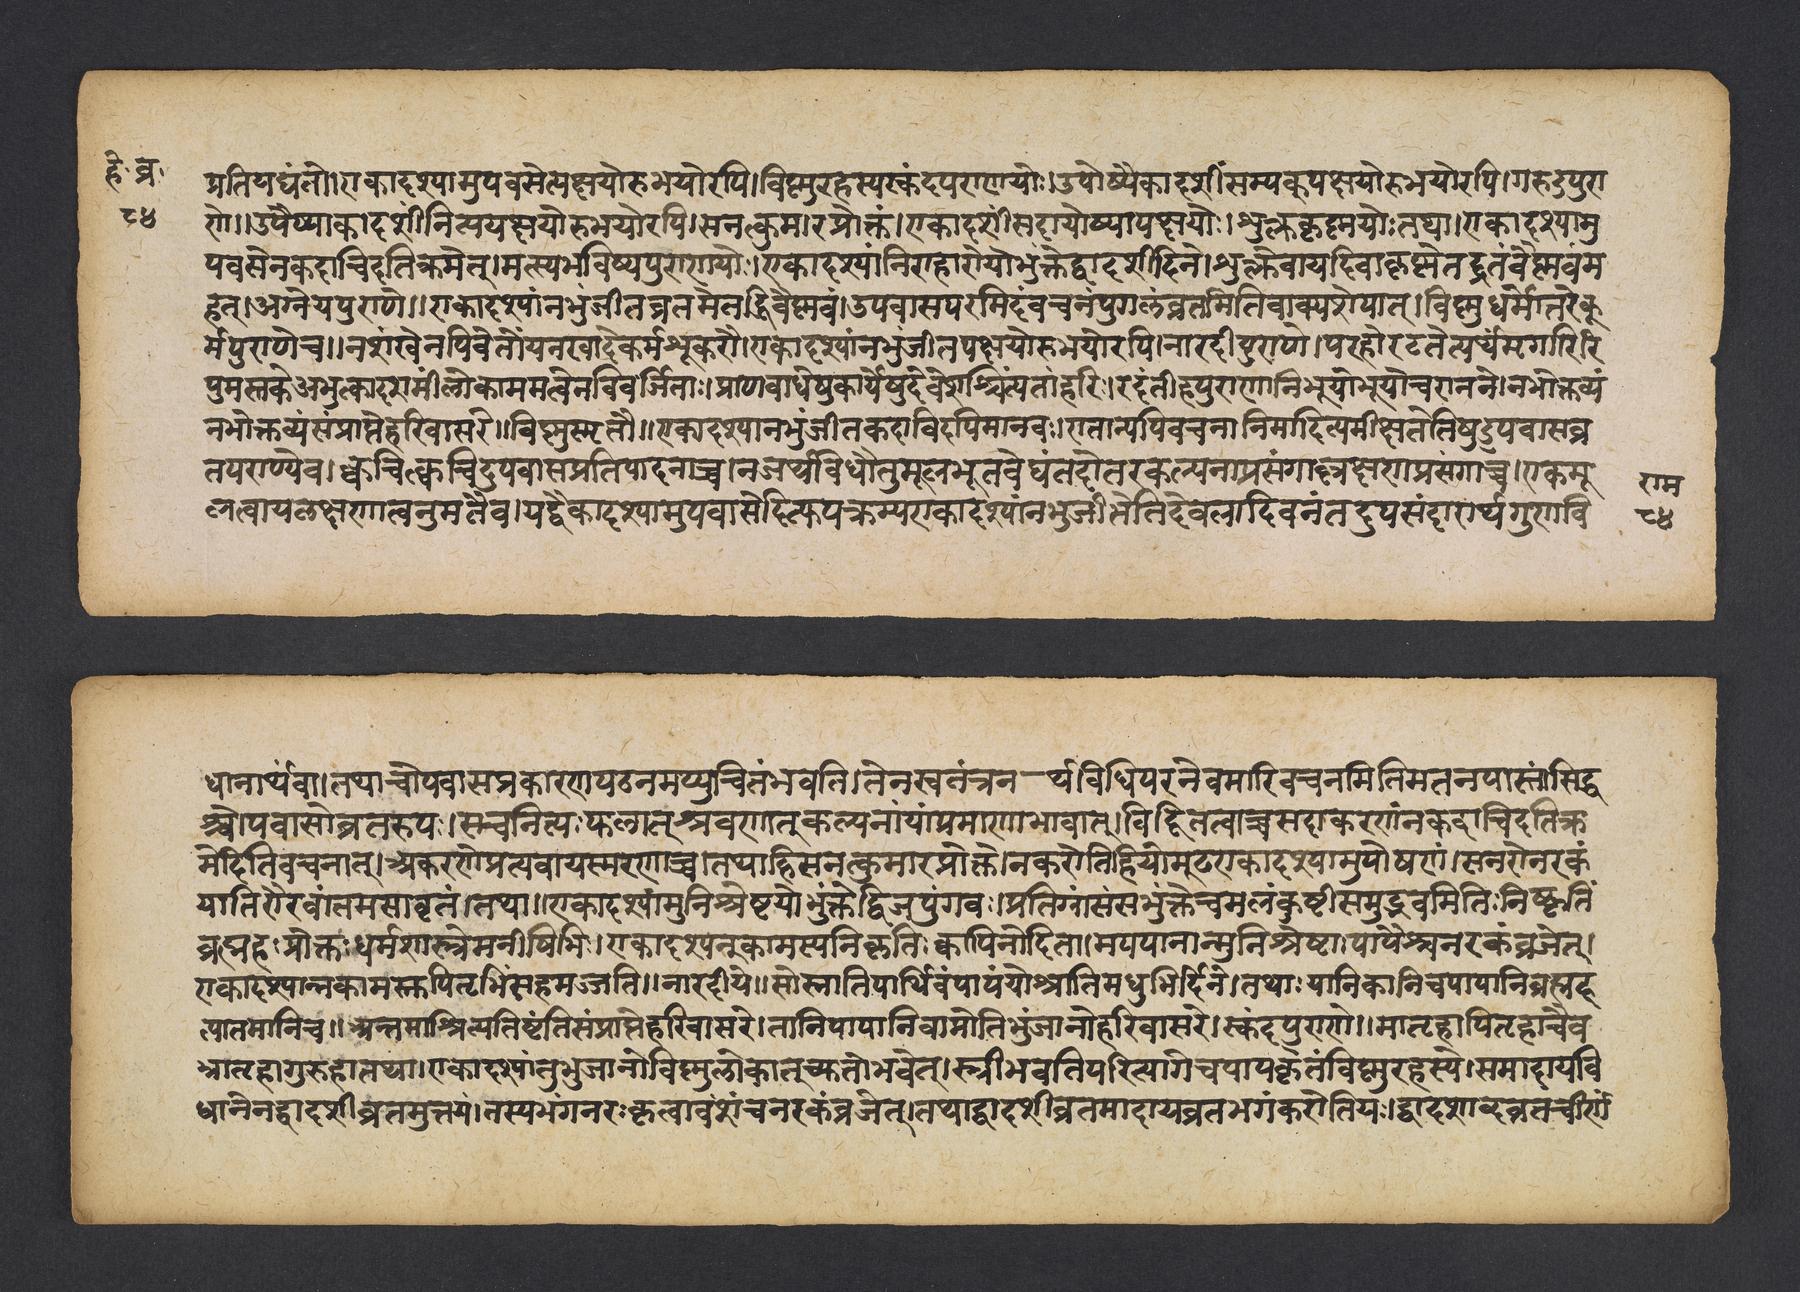 हे. व्र.
८४
प्रतियद्यंतो।एकादश्यामुपवसेत्पक्षयोरुभयोरपि।विष्णुरहस्यस्कंदपुराणयोः।उपोष्यैकादशीं सम्यक्पक्षयोरुभयोरपि।गरुडपुरा
णे॥उपैष्याकादशीं नित्यपक्षयोरुभयोरपि।सनत्कुमारप्रोक्तं।एकादशीं सदापोष्यापक्षयोः।शुक्लकृष्णयोःतथा।एकादश्यामु
पवसेनकदाचिदतिक्रमेत्।मत्स्यभविष्यपुराणयोः।एकादश्यांनिराहारोयोभुंक्तेद्वादशीदिने।शुक्लेवायदिवाकृष्णेतद्व्रतंवैष्णवंम
हत्।अग्नेयपुराणे॥एकादश्यांनभुंजीतव्रतमेतद्धिवैष्णवं।उपवासपरमिदंवचनंपुगलंव्रतमितिवाक्यशेषात्।विष्णुधर्मोत्तरेकू
र्मपुराणेच॥नशंखेनपिबेतोंयनखादेकर्मशूकरौ।एकादश्यांनभुंजीतपक्षयोरुभयोरपि।नारदीपुराणे।परहोरटतेत्यर्थंमगारिरि
पुमस्तकेअभुत्कादशमींलोकाममत्वेनविवर्जिताः।प्राणवाधेषुकार्येषुदेवेशश्चिंत्यतांहरिः।रटंतीहपुराणानिभूयोभूयोवराननने।नभोक्तव्यं
नभोक्तव्यंसंप्राप्तेहरिवासरे॥विष्णुस्मृतौ॥एकादश्यानभुंजीतकदाचिदपिमानवः।एतान्यपिवचनानिमादित्यमीक्षेतेतिषुद्रुपवासव्र
तपराण्येव।क्वचित्क्वचिदुपवासप्रतिपादनाच्च।नञर्थविधौतुमूलभूतवेद्यंतदोतरकल्पनाप्रसंगाल्लक्षणाप्रसंगाच्च।एकमू
लत्वायलक्षणात्वनुमतैव।यद्वैकादश्यामुपवासेदित्यपक्रम्यएकादश्यांनभुंजीतेतिदेवलादिवनंतदुपसंहारार्थगुणवि
राम
८४
धानार्थंवा।तथाचोपवासप्रकारणपठनमप्युचितंभवति।तेनस्वतंत्रन—र्थविधिपरनेवमारिवचनमितिमतनपास्तं।सिद्ध
श्चोपवासोव्रतरुपः।सचनित्यःफलात्श्रवणात्कल्पनायांप्रमाणाभावात्।विहितत्वाच्चसदाकरणंनकदाचिदतिक्र
मेदितिवचनात्।अकरणेप्रत्यवायस्मरणाच्च।तथाहिसनत्कुमारप्रोक्ते।नकरोतिहियोमूढएकादश्यामुपोषणं।सनरोनरकं
यातिरौरवंतमसावृतं।तथा॥एकादश्यांमुनिश्रेष्टयोभुंक्तेद्विजपुंगवः।प्रतिग्रांसंसभुंक्तेचमलंकुष्टीसमुद्भवमितिःनिष्कृतिं
व्रह्महःप्रोक्तःधर्मशास्त्रेमनीषिभिः।एकादश्यनुकामस्यनिकृतिःक्वापिनोदिता।मपपानान्मुनिश्रेष्टाःपापैश्चनरकंव्रजेत्।
एकादश्यान्नकामस्तपितृभिःसहमज्जति॥नारदीये॥सोस्नातिपार्थिवंपापंयोश्नातिमधुभिर्दिने।तथाःयानिकानिचपापानिव्रह्मह
त्यातमानिच॥अन्नमाश्रित्यतिष्टंतिसंप्राप्तेहरिवासरे।तानिपापानिवामोतिभुंजानोहरिवासरे।स्कंदपुराणे॥मातृहापितृहाचैव
भ्रातृहागुरुहातथा।एकादश्यांतुभुजानोविष्णुलोकात्च्युतोभवेत्।स्त्रीभवतिपरित्यागेचपापकृतंविष्णुरहस्ये।समादायवि
धानेनद्वादशीव्रतमुत्तमं।तस्यभंगनरःकृत्वावंशंचनरकंव्रजेत्।तथाद्वादशीव्रतमादायव्रतभगंकरोतियः।द्वादशाब्दव्रतचीर्णं